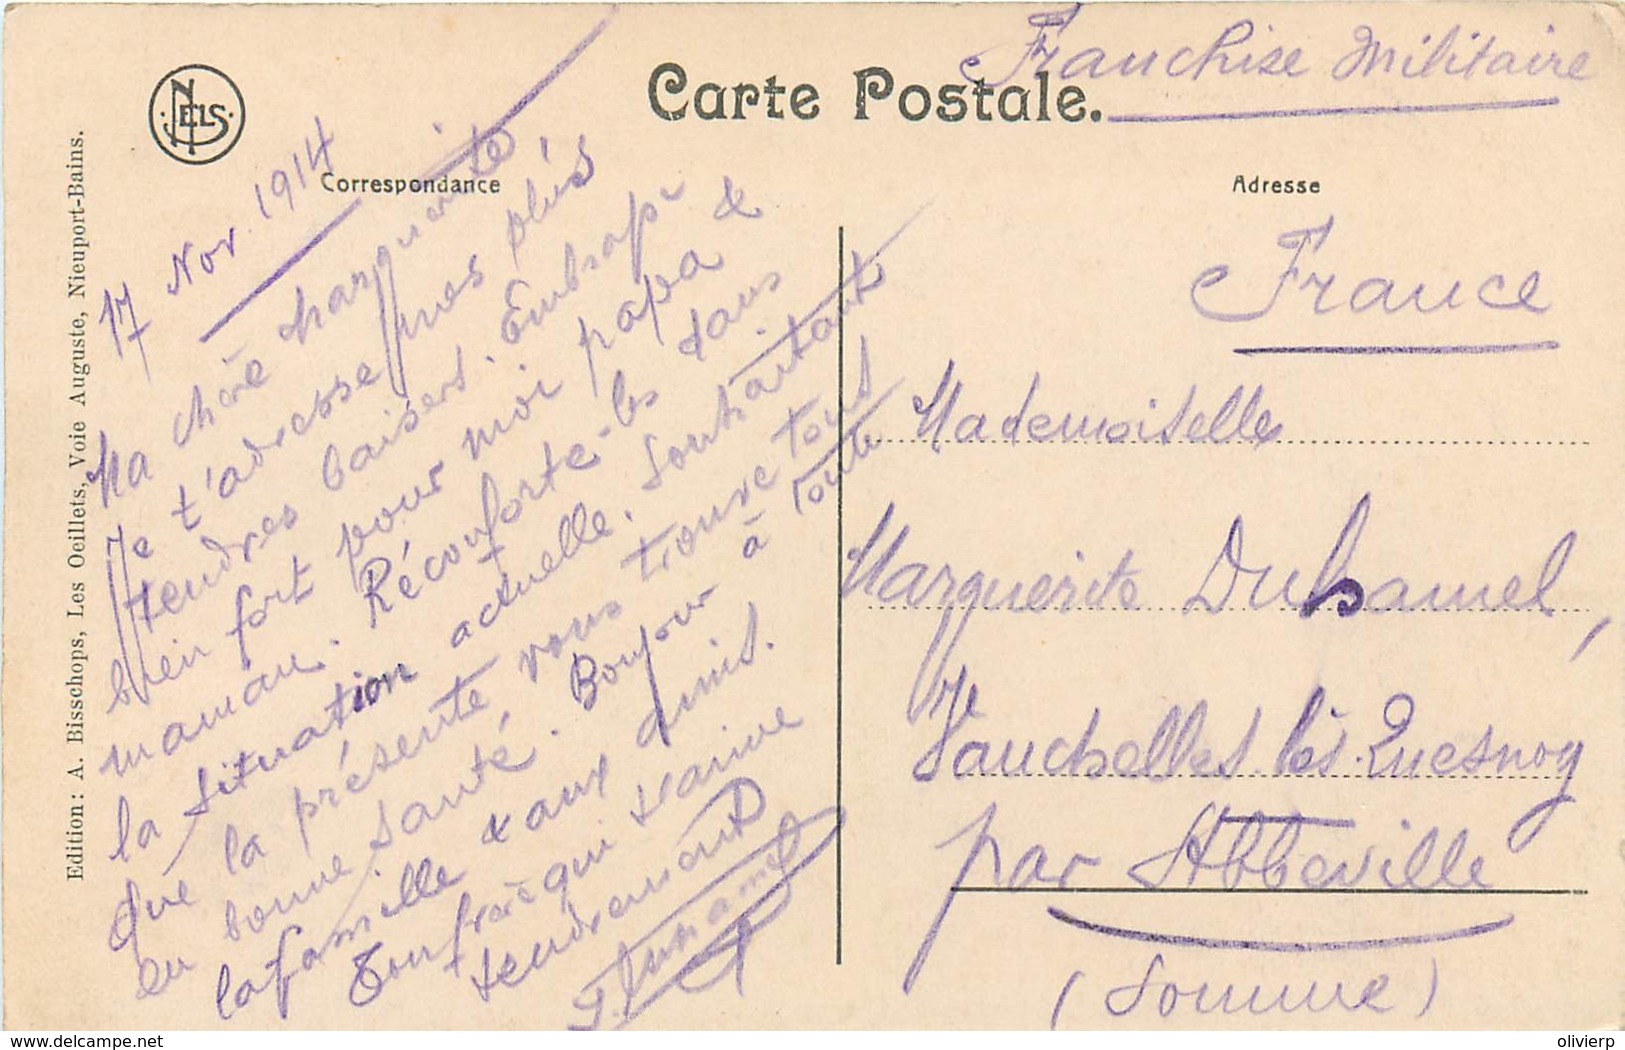 Franchise Militaire
Carte Postale.
NELS
Correspondance
Adresse
Edition: A. Bisschops, Les Oeillets, Voie Auguste, Nieuport-Bains.
17 Nov. 1914
Ma chère Marguerite
Je t'adresse mes plus
tendres baisers. Embrasse
bien fort pour moi papa &
maman. Réconforte-les dans
la situation actuelle. Souhaitant
que la présente vous trouve tous
en bonne santé. Bonjour à toute
la famille & aux amis.
Ton frère qui t'aime
tendrement
Duhamel
France
Mademoiselle
Marguerite Duhamel,
Vauchelles lès Quesnoy
par Abbeville
(Somme)
www.delcampe.net
olivierp